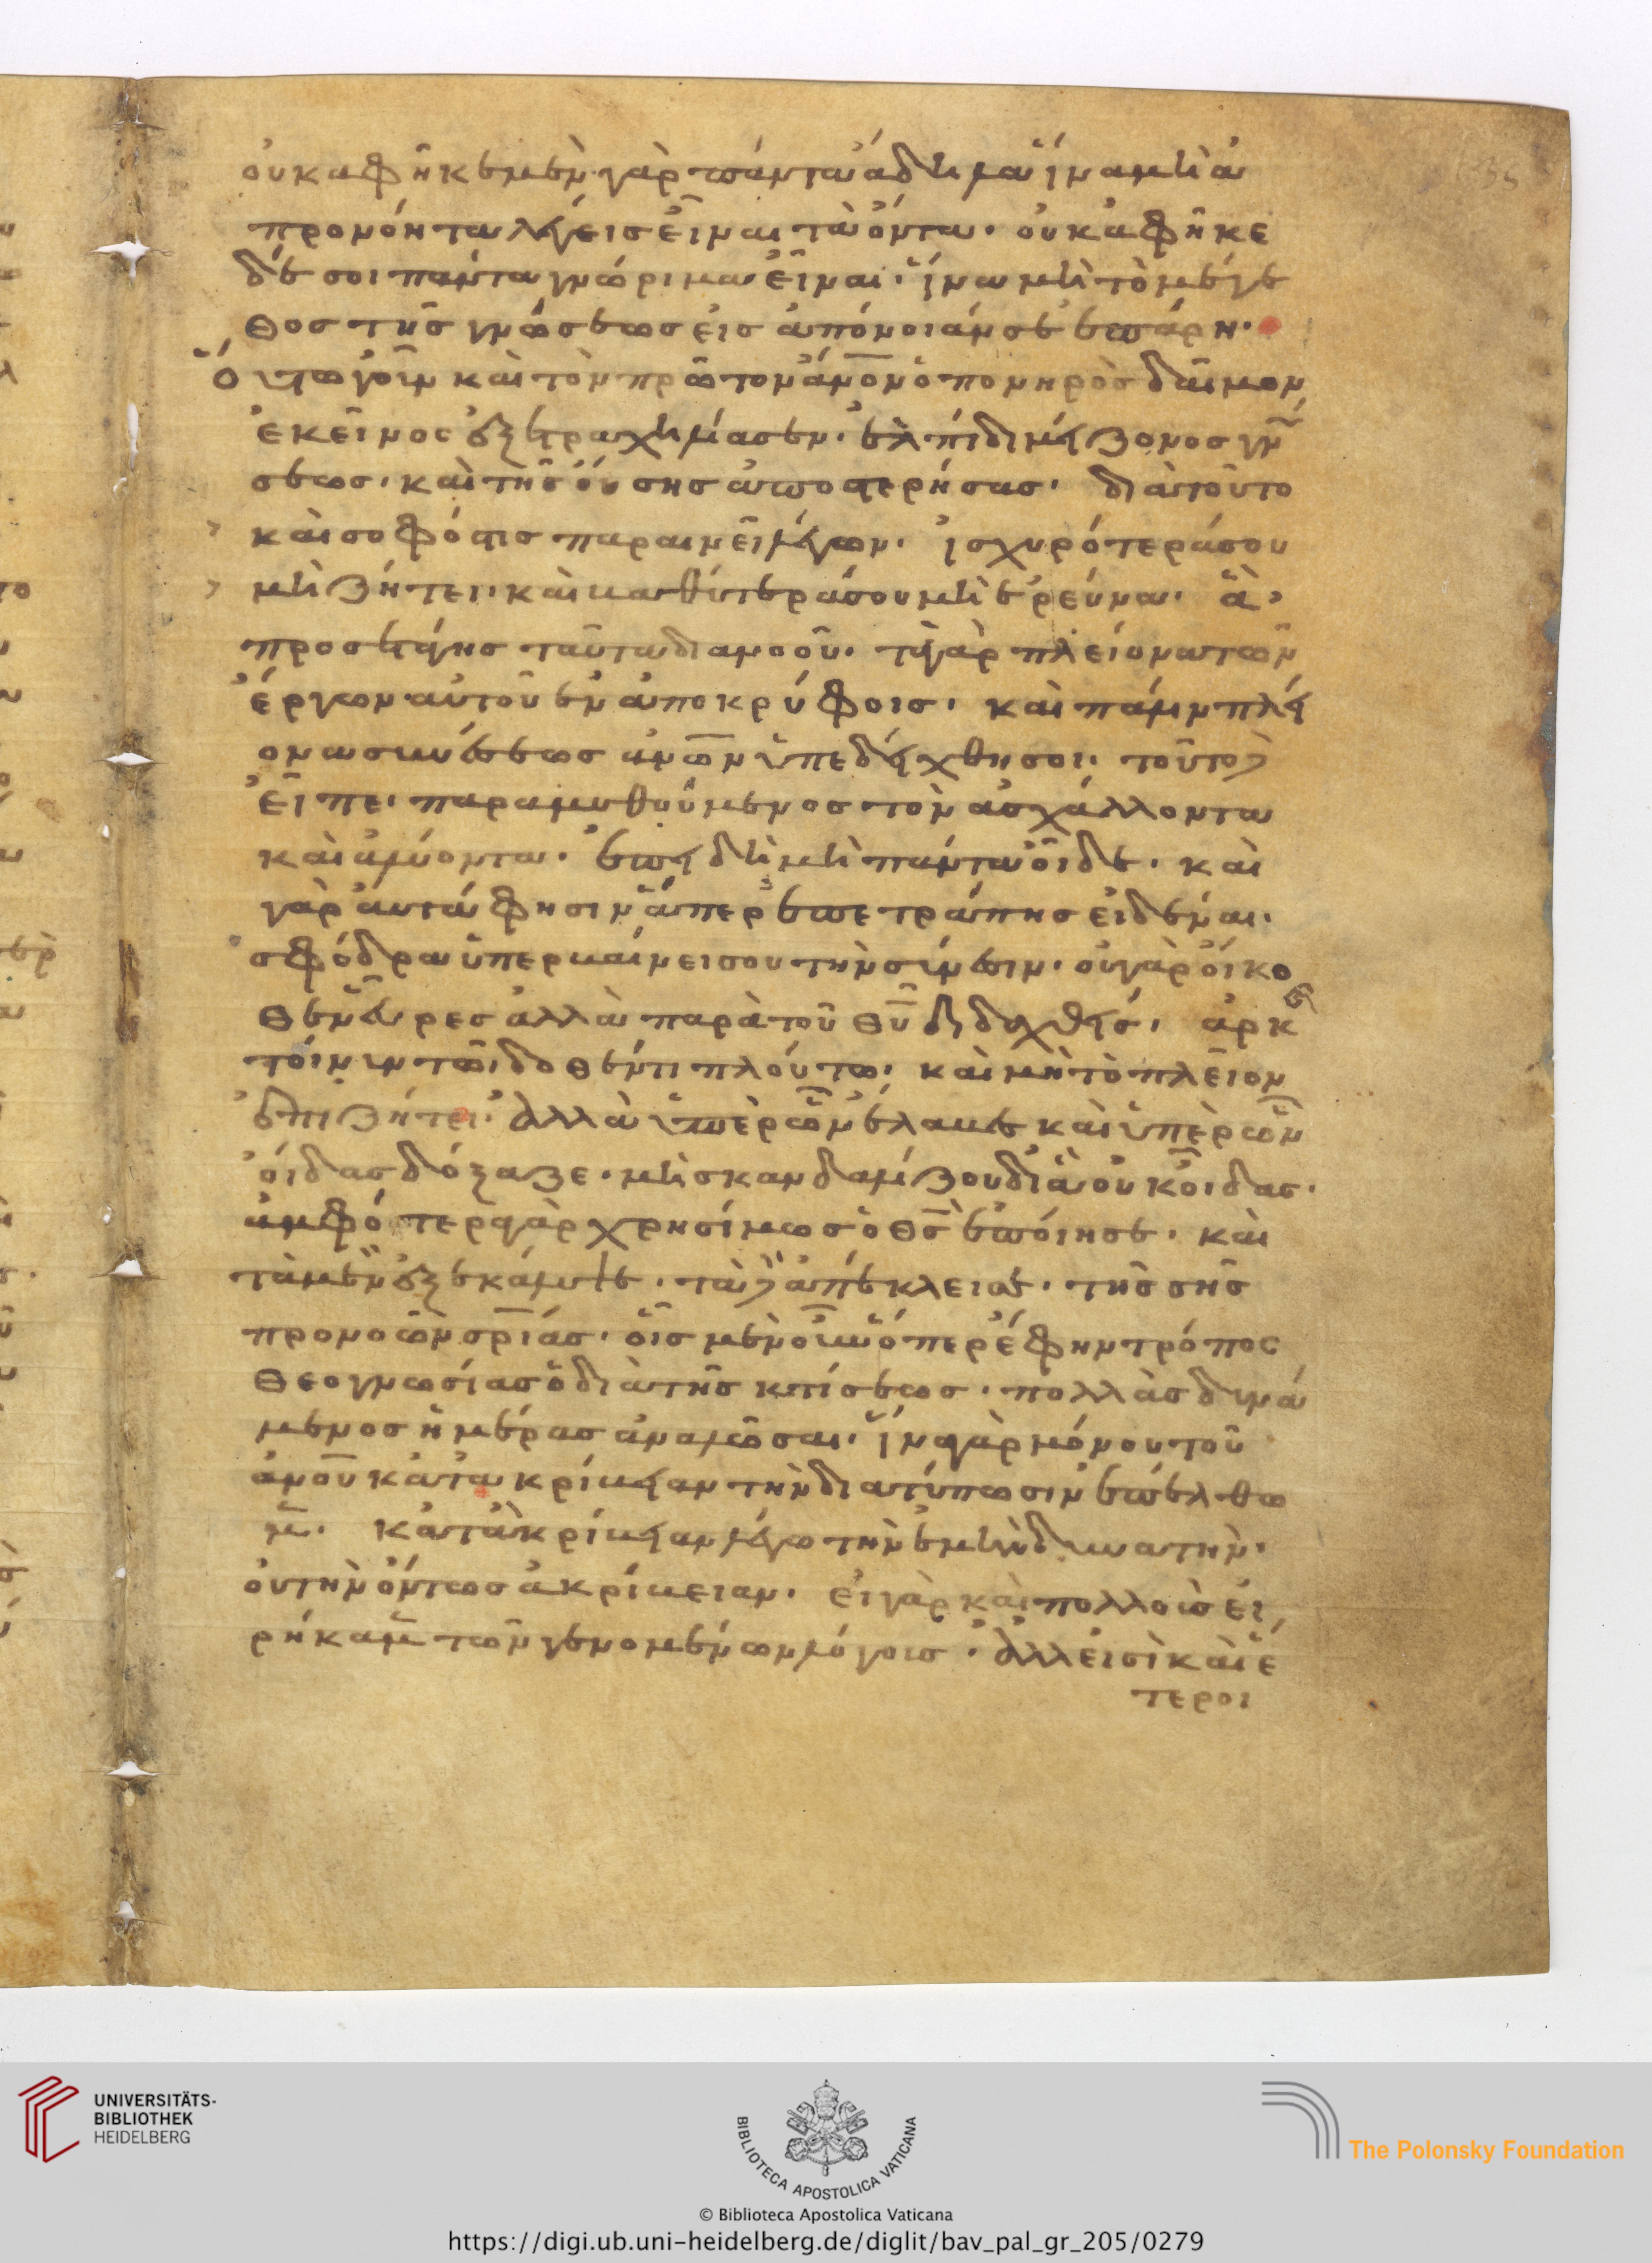 οὐκ ἀφῆκε μὲν γὰρ πάντα ἄδηλα ἵνα μὴ ἀ
προνόητα λέγεις εἶναι τὰ ὄντα· οὐκ ἀφῆκε
δέ σοι πάντα γνώριμα εἶναι· ἵνα μὴ τὸ μέγε
θος τῆς γνώσεως εἰς ἀπόνοιάν σε ἐπάρῃ·
Οὕτω γοῦν καὶ τὸν πρῶτον ἄνον ὁ πονηρὸς δαίμων
ἐκεῖνος ἐξετραχήλιασεν· ἐλπίδι μείζονος γνώ
σεως· καὶ τῆς οὔσης ἀποστερήσας· διατοῦτο
καὶ σοφός τις παραινεῖ λέγων· ἰσχυρότερά σου
μὴ ζήτει· καὶ βαθύτερά σου μὴ ἐρεύνα· ἃ
προσετάγης ταῦτα διανοοῦ· τὰ γὰρ πλείονα τῶν
ἔργων αὐτοῦ ἐν ἀποκρύφοις· καὶ πάλιν πλεί
ονα συνέσεως ἀνων ὑπεδείχθη σοι· τοῦτο δὲ
εἶπε· παραμυθούμενος τὸν ἀσχάλλοντα
καὶ ἀλύοντα· ἐπειδὴ μὴ πάντα οἶδε· καὶ
γὰρ αὐτά φησιν ἅπερ ἐπετράπης εἰδέναι·
σφόδρα ὑπερβαίνει σου τὴν σύνεσιν· οὐ γὰρ οἴκο
θεν εὗρες ἀλλὰ παρὰ τοῦ θυ διδαχθείς· ἀρκοῦ
τοίνυν τῷ δοθέντι πλούτῳ· καὶ μὴ τὸ πλεῖον
ἐπιζήτει· ἀλλὰ ὑπὲρ ὧν ἔλαβε καὶ ὑπὲρ ὧν
οἶδας δόξαζε· μὴ σκανδαλίζου δι' ἃ οὐκ οἶδας·
ἀμφότερα γὰρ χρησίμως ὁ θς ἐποίησε· καὶ
τὰ μὲν ἐξεκάλυψε· τὰ δὲ ἀπέκλεισε· τῆς σῆς
προνοῶν σριας· εἷς μὲν οὖν ὅπερ ἔφην τρόπος
θεογνωσίας ὁ διὰ τῆς κτίσεως· πολλὰς δυνά
μενος ἡμέρας ἀναλῶσαι· ἵνα γὰρ μόνου τοῦ
ἀνου κατὰ ἀκρίβειαν τὴν διατύπωσιν ἐπέλθω
μεν· κατὰ ἀκρίβειαν λέγω τὴν ἐμὴν δυνατήν·
οὐ τὴν ὄντως ἀκρίβειαν· εἰ γὰρ καὶ πολλοὺς εἰ
ρήκαμεν τῶν γενομένων λόγους· ἀλλ' εἰσὶ καὶ ἕ
τεροι
UNIVERSITÄTS-
BIBLIOTHEK
HEIDELBERG
BIBLIOTECA APOSTOLICA VATICANA
The Polonsky Foundation
© Biblioteca Apostolica Vaticana
https://digi.ub.uni-heidelberg.de/diglit/bav_pal_gr_205/0279